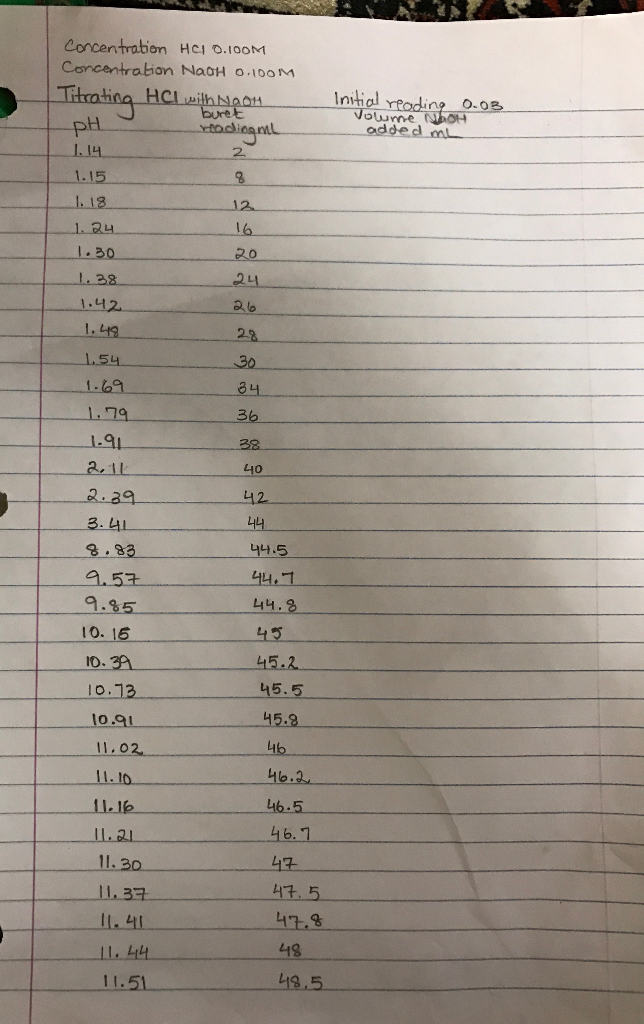 Concentration HCl 0.100M
Concentration NaOH 0.100M
Titrating HCl with NaOH Initial reading 0.03
pH buret reading ml Volume NaOH added mL
1.14 2
1.15 8
1.18 12
1.24 16
1.30 20
1.38 24
1.42 26
1.48 28
1.54 30
1.69 34
1.79 36
1.91 38
2.11 40
2.39 42
3.41 44
8.83 44.5
9.57 44.7
9.85 44.8
10.15 45
10.39 45.2
10.73 45.5
10.91 45.8
11.02 46
11.10 46.2
11.16 46.5
11.21 46.7
11.30 47
11.37 47.5
11.41 47.8
11.44 48
11.51 48.5